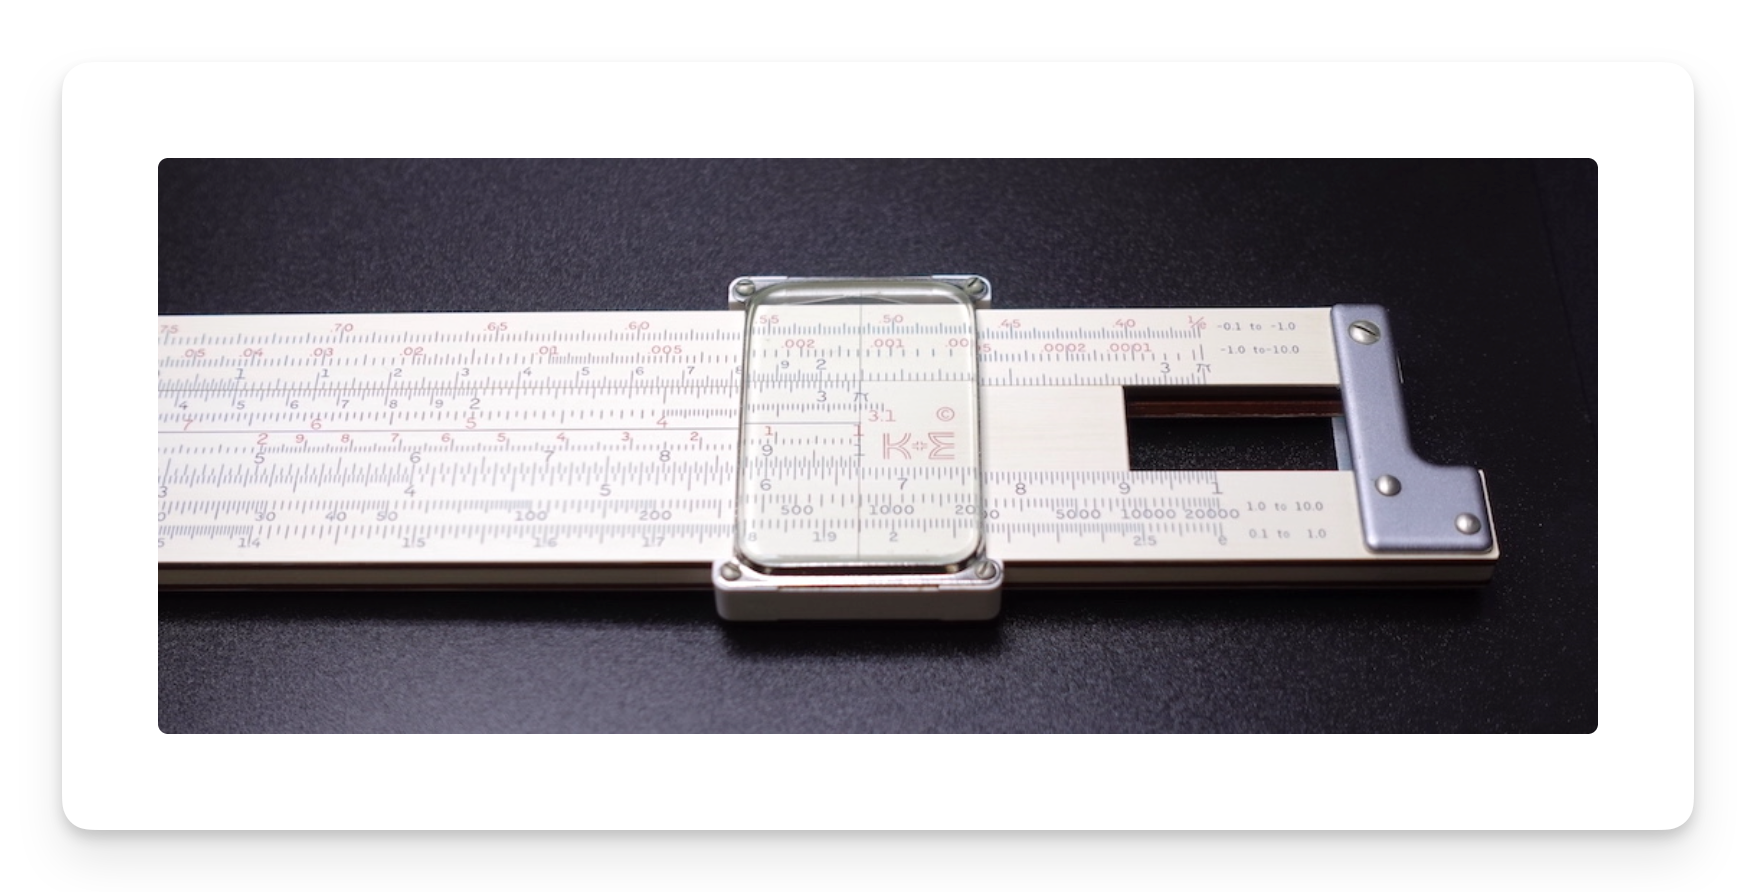 .75 .70 .65 .60 .55 .50 .45 .40 1/e -0.1 to -1.0
.05 .04 .03 .02 .01 .005 .002 .001 .0005 .0002 .0001 -1.0 to -10.0
1 1 2 3 4 5 6 7 8 9 2 3 π
4 5 6 7 8 9 2 3 π
7 6 5 4 3.1 ©
2 9 8 7 6 5 4 3 2 1 1 K+E
5 6 7 8 9 1
3 4 5 6 7 8 9 1
30 40 50 100 200 500 1000 2000 5000 10000 20000 1.0 to 10.0
1.4 1.5 1.6 1.7 1.8 1.9 2 2.5 e 0.1 to 1.0